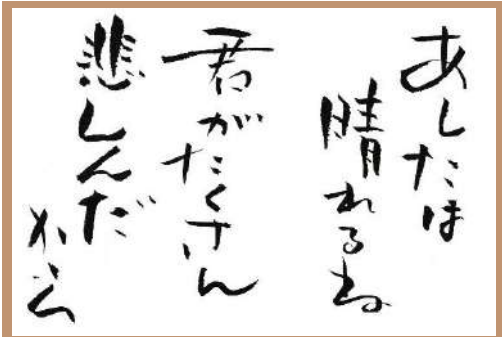 あしたは
晴れるね
君がたくさん
悲しんだ
から